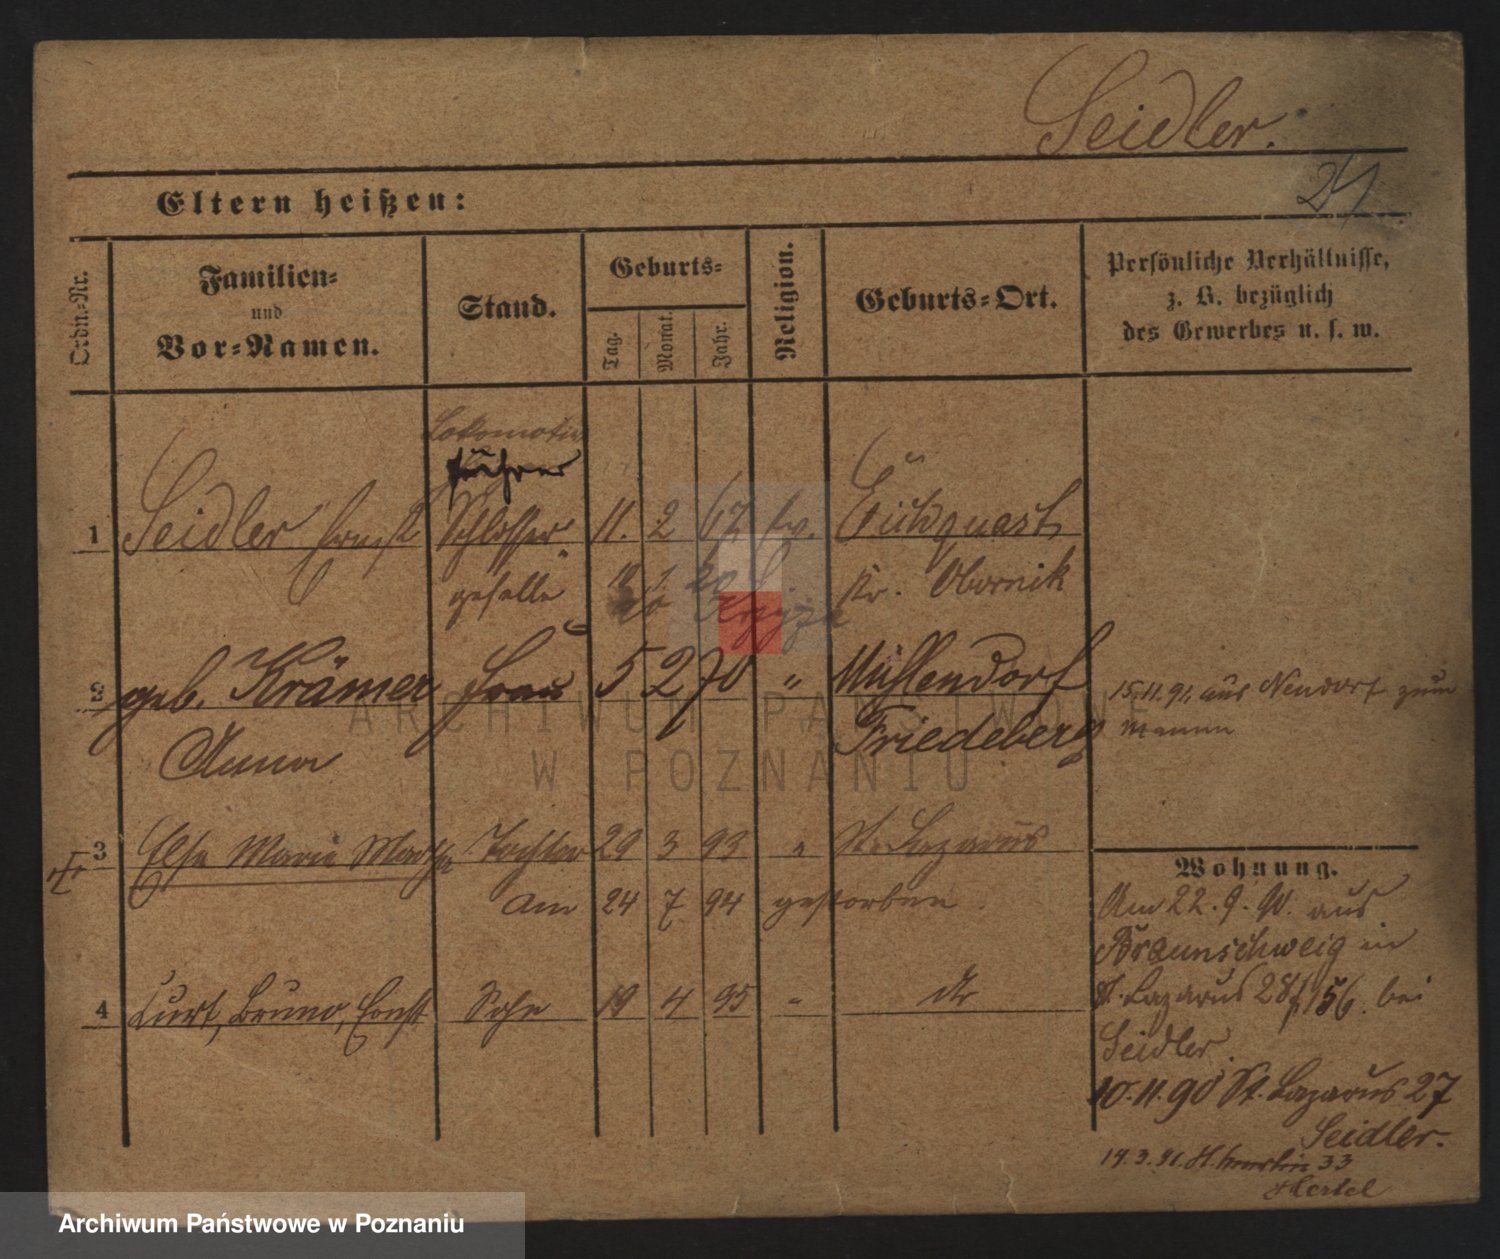 Seidler.
24
Eltern heißen:
Ordn.-Nr.
Familien-
und
Vor-Namen.
Stand.
Geburts-
Tag.
Monat.
Jahr.
Religion.
Geburts-Ort.
Persönliche Verhältnisse,
z. B. bezüglich
des Gewerbes u. s. w.
Lokomotiv
führer
1 Seidler Ernst Schlosser 11. 2 67 ev.
geselle Kr. Obornik
2 geb. Krämer Frau 5 2 70 " Mühlendorf
Anna Friedeberg
15.11.91. aus Neudorf zum
Manne
3 Else Marie Martha Tochter 29 3 93 " St. Lazarus
am 24 7 94 gestorben.
4 Curt, Bruno, Ernst Sohn 19 4 95 " do
Wohnung.
Am 22.9.90. aus
Braunschweig in
St. Lazarus 28 156. bei
Seidler.
10.11.90 St. Lazarus 27
Seidler.
14.3.91. 33
Hertel
ARCHIWUM PAŃSTWOWE
W POZNANIU
Archiwum Państwowe w Poznaniu